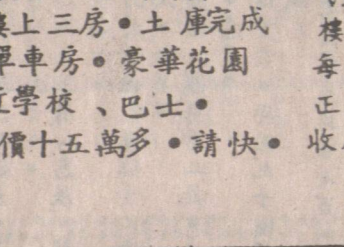 樓上三房●土庫完成
單車房●豪華花園
近學校、巴士●
價十五萬多●請快●
樓
每
正
收